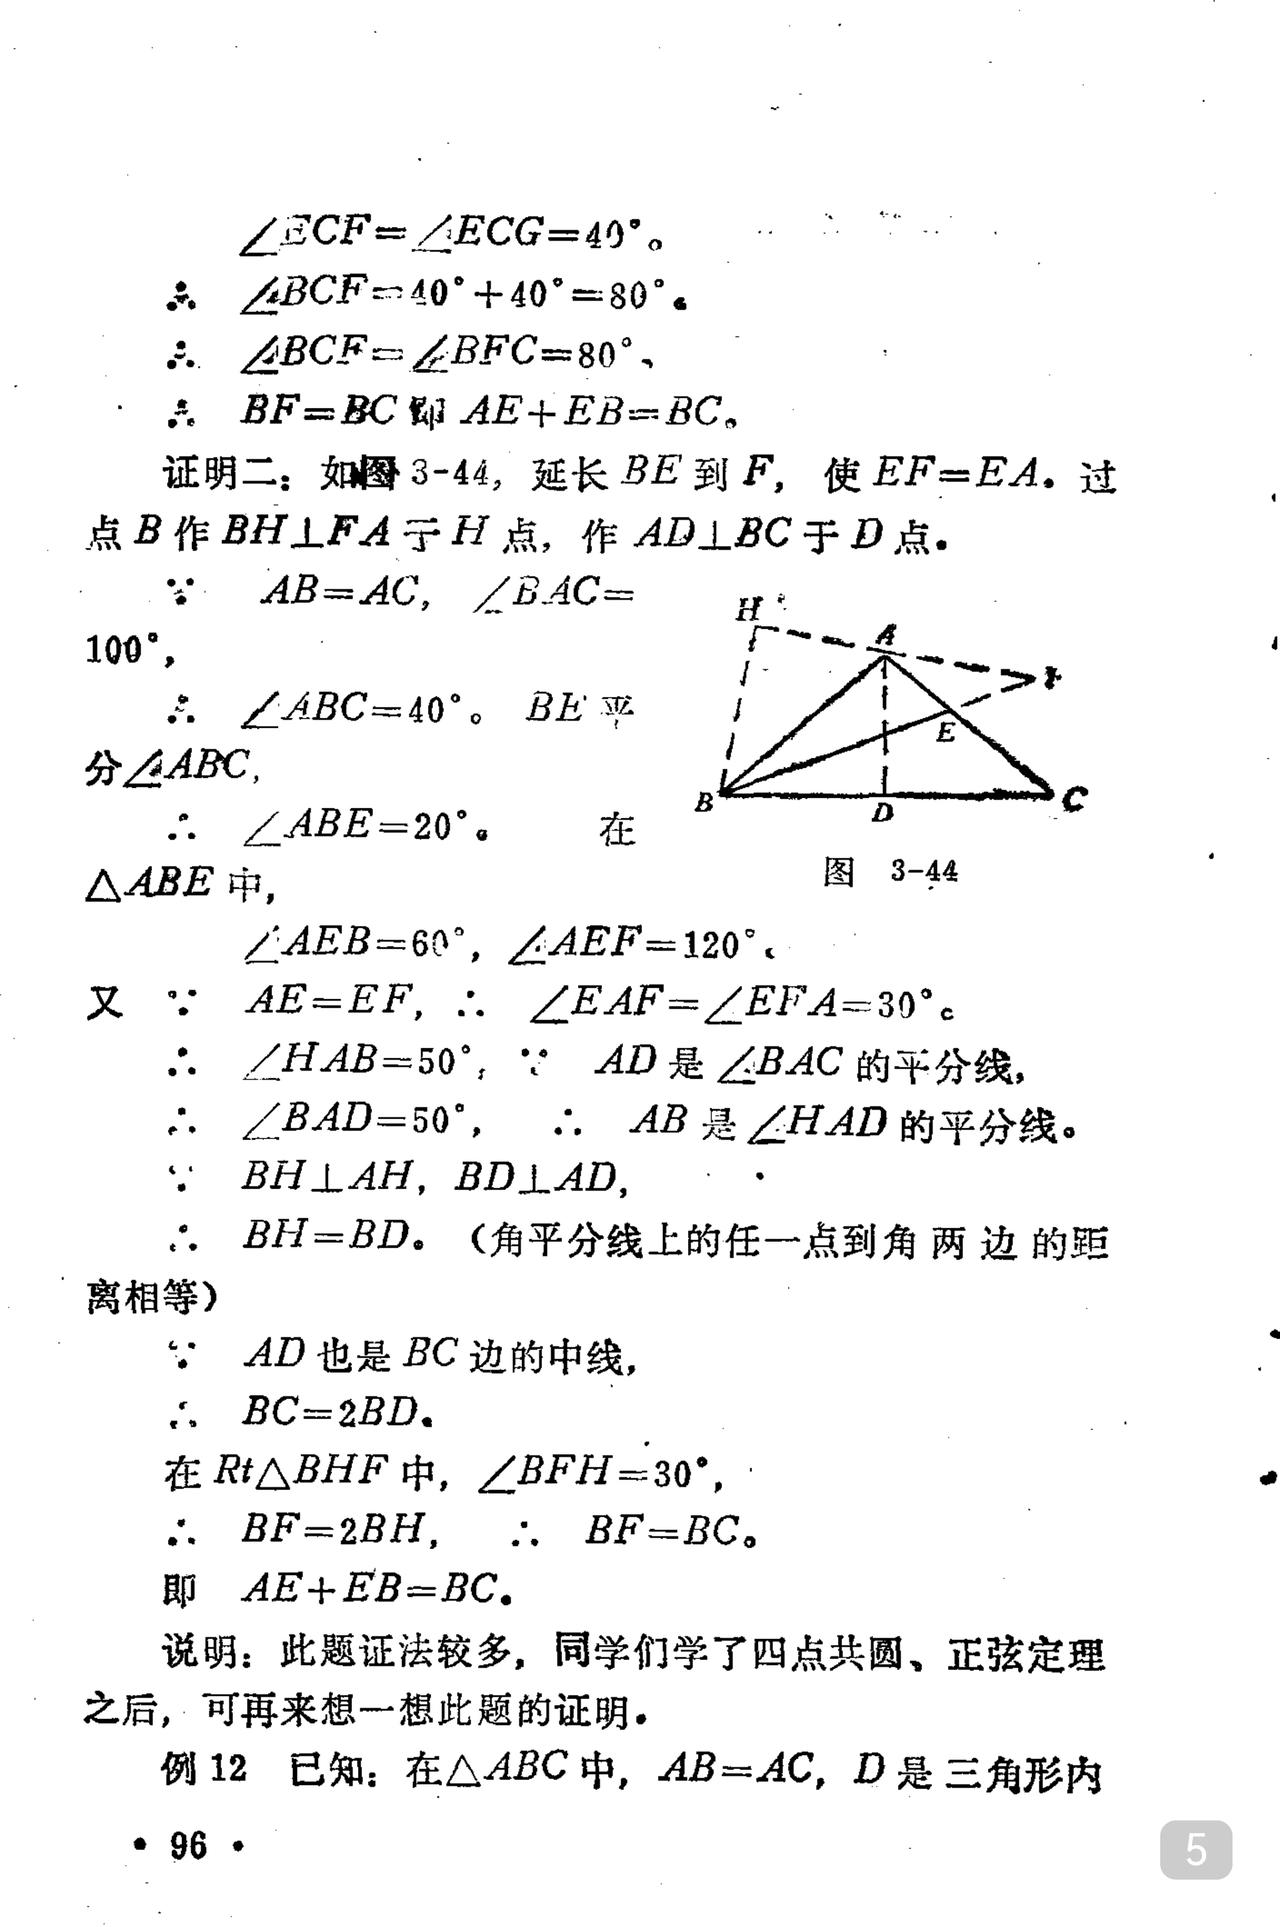 ∠ECF=∠ECG=40°。
∴ ∠BCF=40°+40°=80°。
∴ ∠BCF=∠BFC=80°、
∴ BF=BC即 AE+EB=BC。
证明二：如图3-44，延长BE到F，使EF=EA．过
点B作BH⊥FA于H点，作AD⊥BC于D点．
∵ AB=AC，∠BAC=
100°，
∴ ∠ABC=40°。BE平
分∠ABC，
∴ ∠ABE=20°。 在
△ABE中，
H
A
F
E
B
D
C
图 3-44
∠AEB=60°，∠AEF=120°、
又 ∵ AE=EF，∴ ∠EAF=∠EFA=30°。
∴ ∠HAB=50°，∵ AD是∠BAC的平分线，
∴ ∠BAD=50°， ∴ AB是∠HAD的平分线。
∵ BH⊥AH，BD⊥AD，
∴ BH=BD。（角平分线上的任一点到角两边的距
离相等）
∵ AD也是BC边的中线，
∴ BC=2BD．
在Rt△BHF中，∠BFH=30°，
∴ BF=2BH， ∴ BF=BC。
即 AE+EB=BC．
说明：此题证法较多，同学们学了四点共圆、正弦定理
之后，可再来想一想此题的证明．
例12 已知：在△ABC中，AB=AC，D是三角形内
• 96 •
5